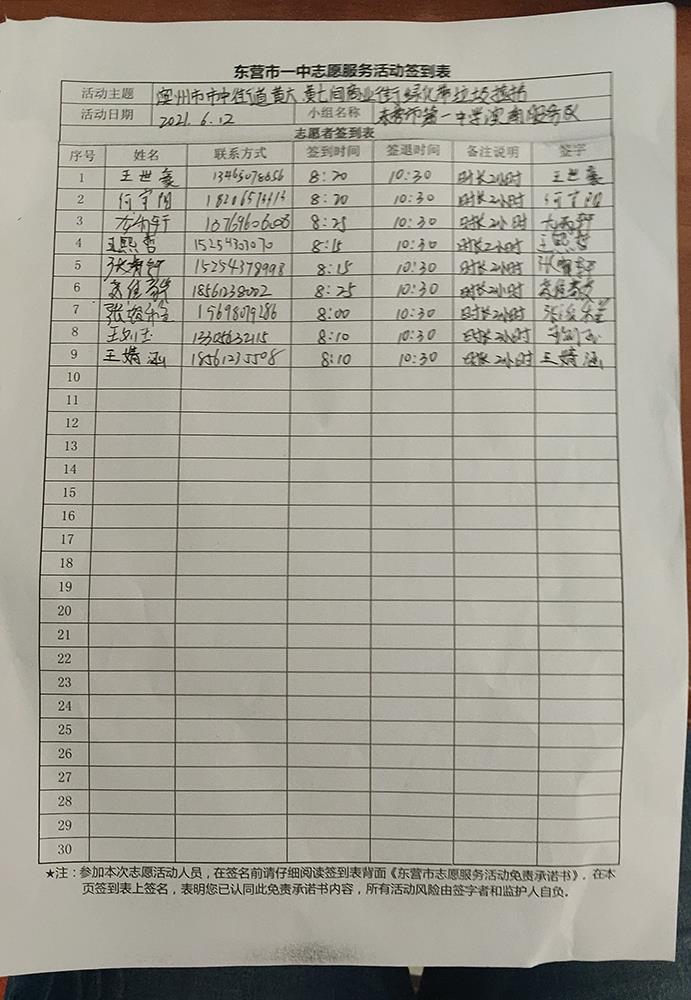 东营市一中志愿服务活动签到表
活动主题 州市市中街道黄大 黄七间商业街绿化带垃圾捡拾
活动日期 2021.6.12 小组名称 东营市第一中学 服务队
志愿者签到表
序号 姓名 联系方式 签到时间 签退时间 备注说明 签字
1 王世豪 13465078656 8:20 10:30 时长2小时 王世豪
2 8:20 10:30 时长2小时
3 8:25 10:30 时长2小时
4 王熙哲 15254303070 8:15 10:30 时长2小时 王熙哲
5 15254378998 8:15 10:30 时长2小时
6 18561238002 8:25 10:30 时长2小时
7 19698079286 8:00 10:30 时长2小时
8 13305632115 8:10 10:30 时长2小时
9 王婧涵 18561235508 8:10 10:30 时长2小时 王婧涵
10
11
12
13
14
15
16
17
18
19
20
21
22
23
24
25
26
27
28
29
30
★注：参加本次志愿活动人员，在签名前请仔细阅读签到表背面《东营市志愿服务活动免责承诺书》。在本
页签到表上签名，表明您已认同此免责承诺书内容，所有活动风险由签字者和监护人自负。